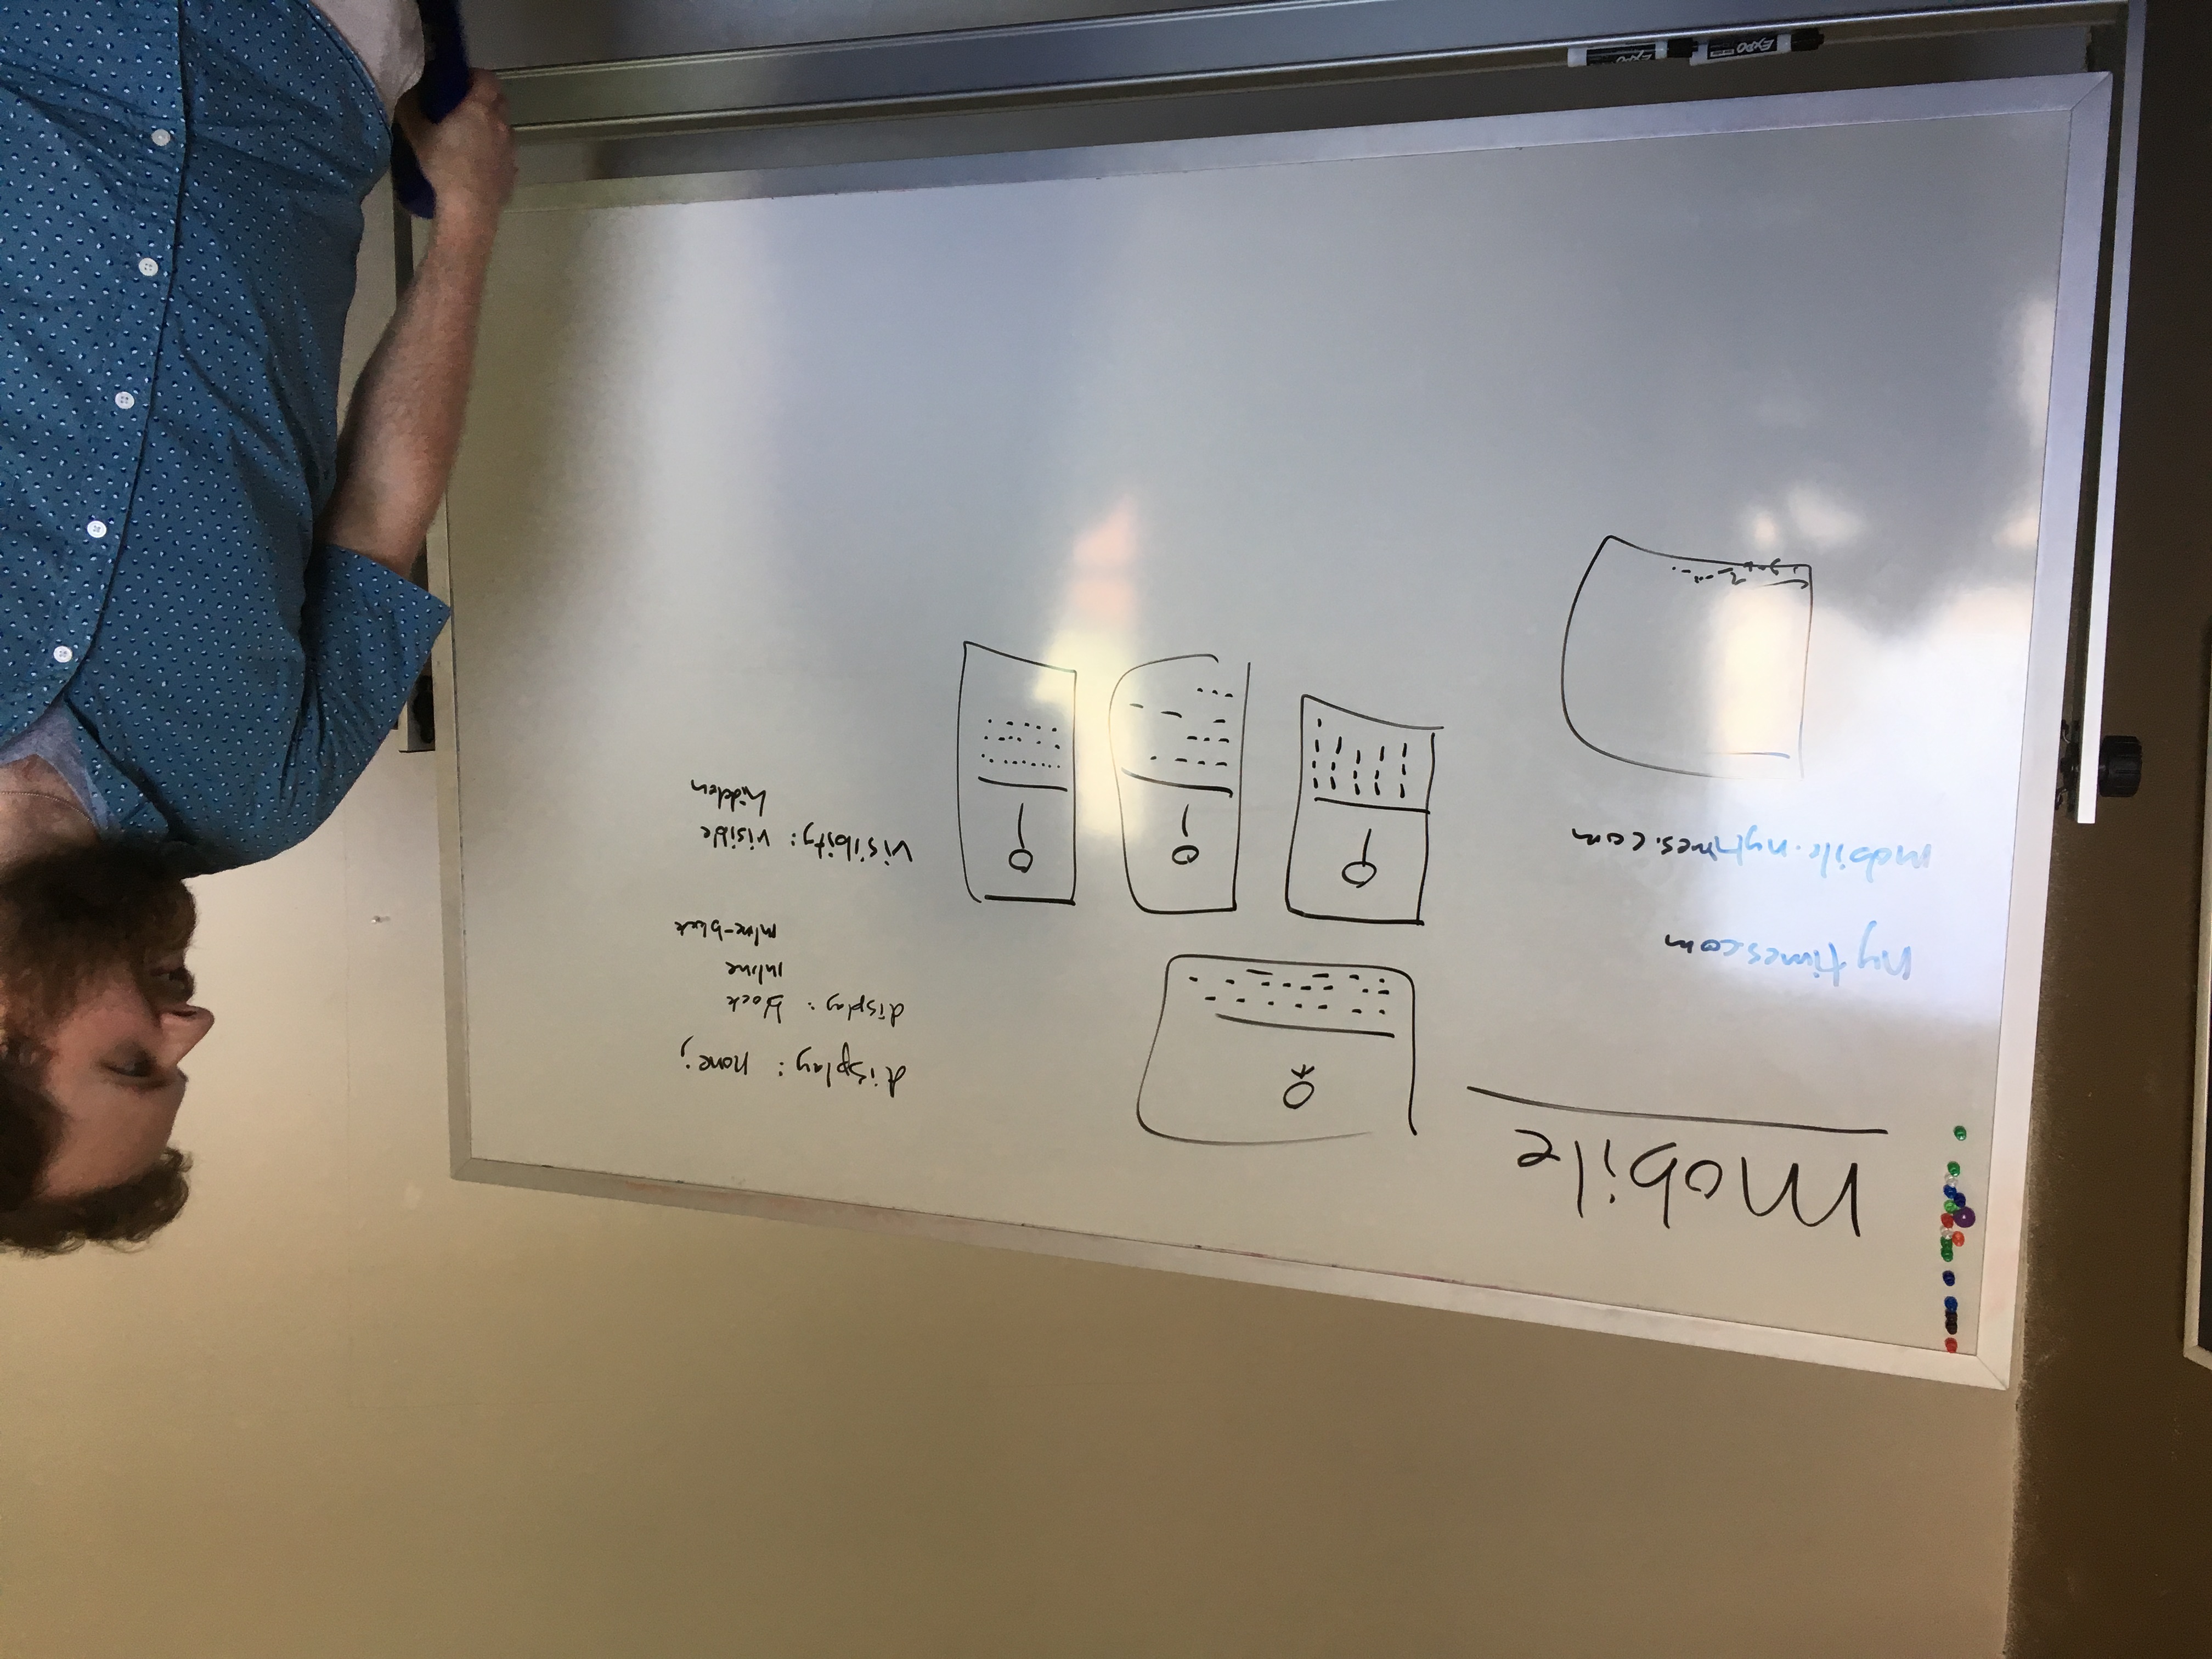 mobile
nytimes.com
mobile.nytimes.com
display: none;
display: block
inline
inline-block
visibity: visible
hidden
EXPO
EXPO